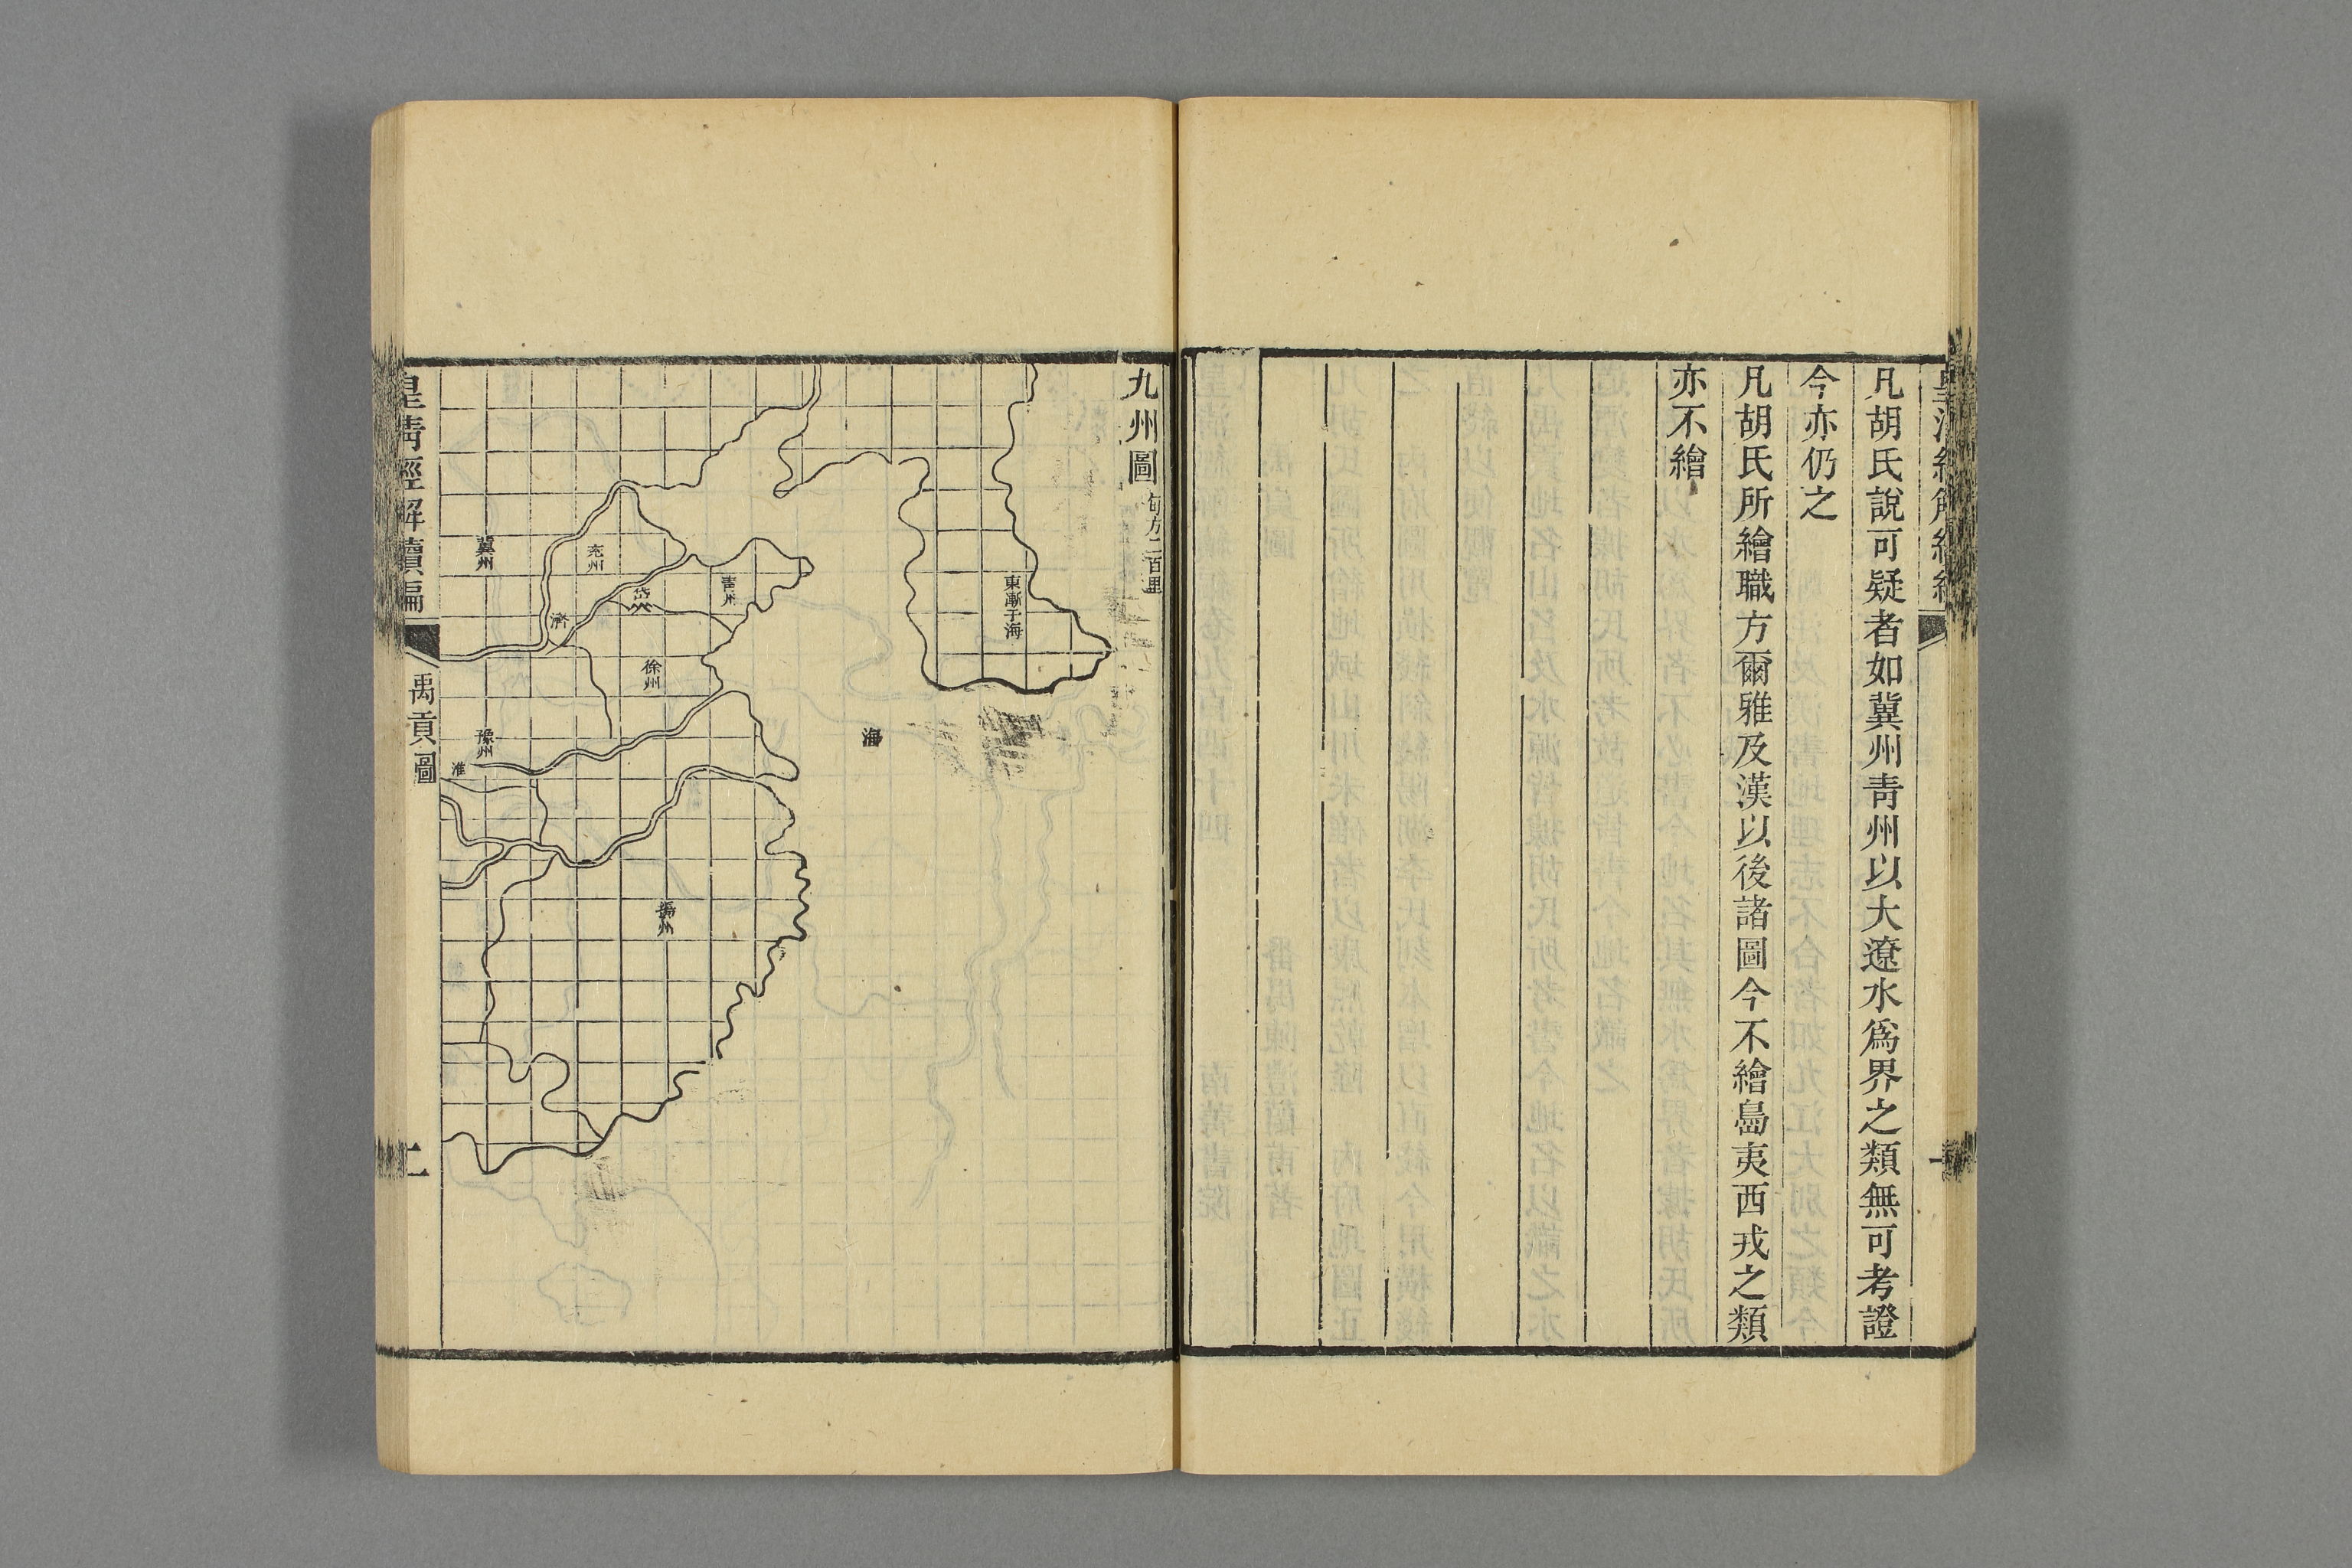 凡胡氏說可疑者如冀州靑州以大遼水爲界之類無可考證
今亦仍之
凡胡氏所繪職方爾雅及漢以後諸圖今不繪島夷西戎之類
亦不繪
九州圖
每方二百里
東漸于海
海
靑州
岱
兗州
濟
冀州
徐州
豫州
淮
揚州
皇清經解續編
禹貢圖
二